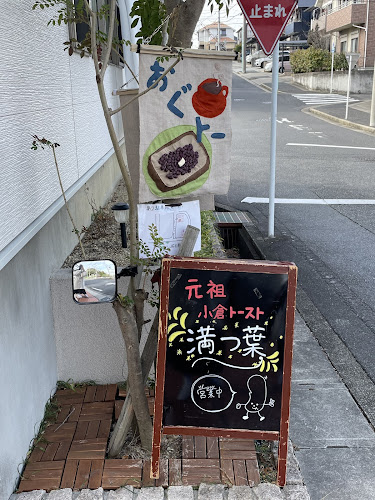 止まれ
おぐ
トー
元祖
小倉トースト
満つ葉
営業中